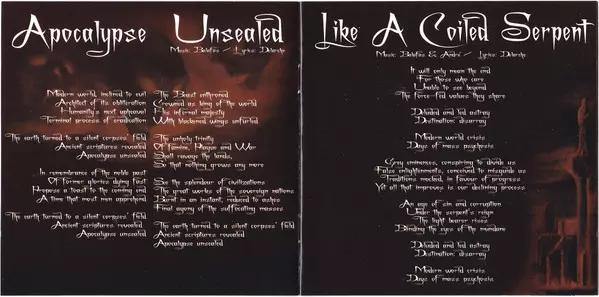 Apocalypse Unsealed
Music: Belefias / Lyrics: Delarste
Modern world, inclined to evil
Architect of its obliteration
Humanity's next upheaval
Terminal process of eradication
The earth formed to a silent corpses' field
Ancient scriptures revealed
Apocalypse unsealed
In remembrance of the noble past
Of former glories dying fast
Propose a toast to the coming end
A time that most men apprehend
The earth formed to a silent corpses' field
Ancient scriptures revealed
Apocalypse unsealed
The Beast enthroned
Crowned as king of the world
His infernal majesty
With blackened wings unfurled
The unholy trinity
Of Famine, Plague and War
Shall ravage the lands,
So that nothing grows any more
See the splendour of civilizations
The great works of the sovereign nations
Burnt in an instant, reduced to ashes
Final agony of the suffocating masses
The earth formed to a silent corpses' field
Ancient scriptures revealed
Apocalypse unsealed
Like A Coiled Serpent
Music: Belefias & André / Lyrics: Delarste
It will only mean the end
For those who care
Unable to see beyond
The force fed values they share
Deluded and led astray
Destination: disarray
Modern world crisis
Days of mass psychosis
Grey eminences, conspiring to divide us
False enlightenments, conceived to misguide us
Traditions mocked, in favour of progress
Yet all that improves is our declining process
An age of sin and corruption
Under the serpent's reign
The light bearer rises
Blinding the eyes of the mundane
Deluded and led astray
Destination: disarray
Modern world crisis
Days of mass psychosis